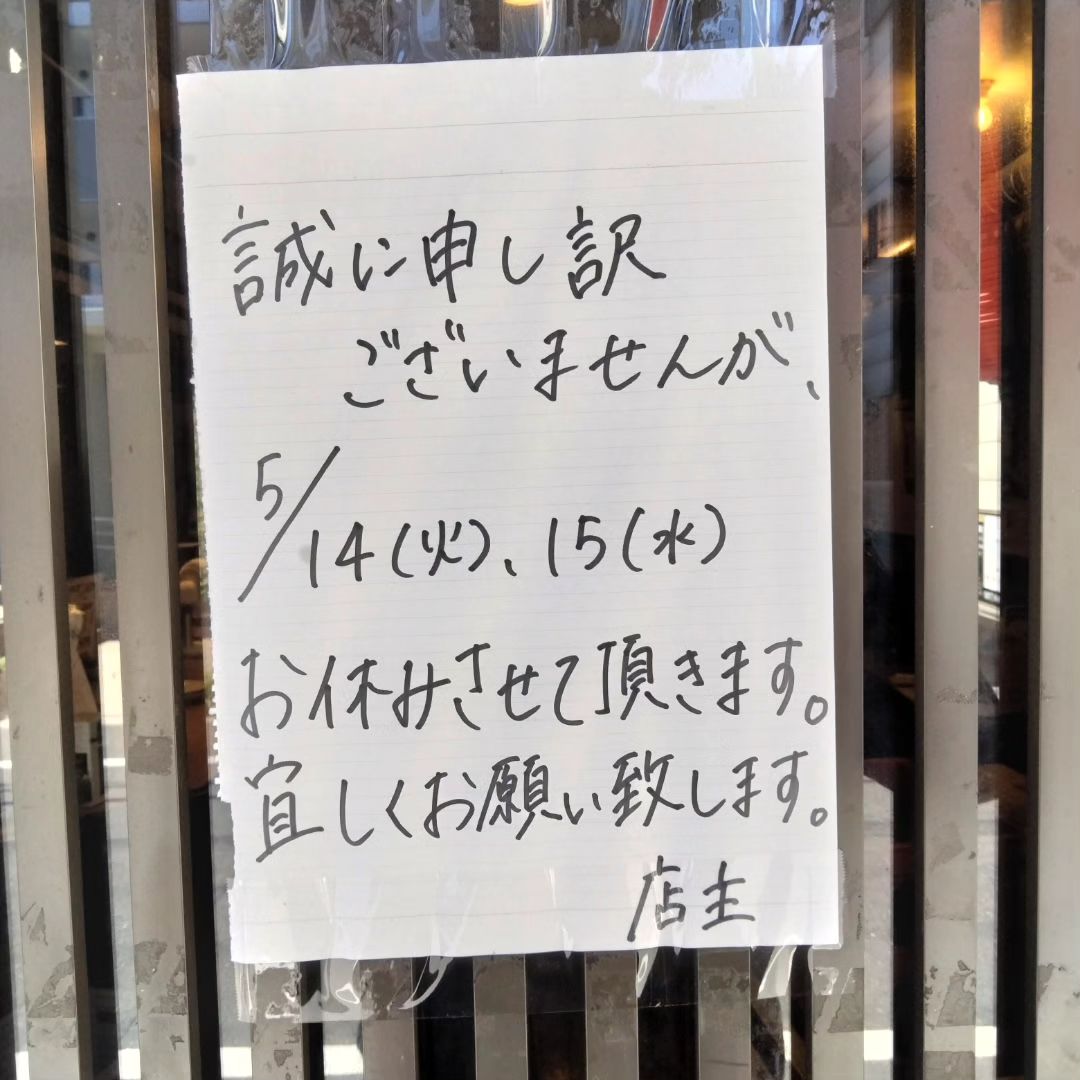 誠に申し訳
ございませんが、
5/14(火)、15(水)
お休みさせて頂きます。
宜しくお願い致します。
店主